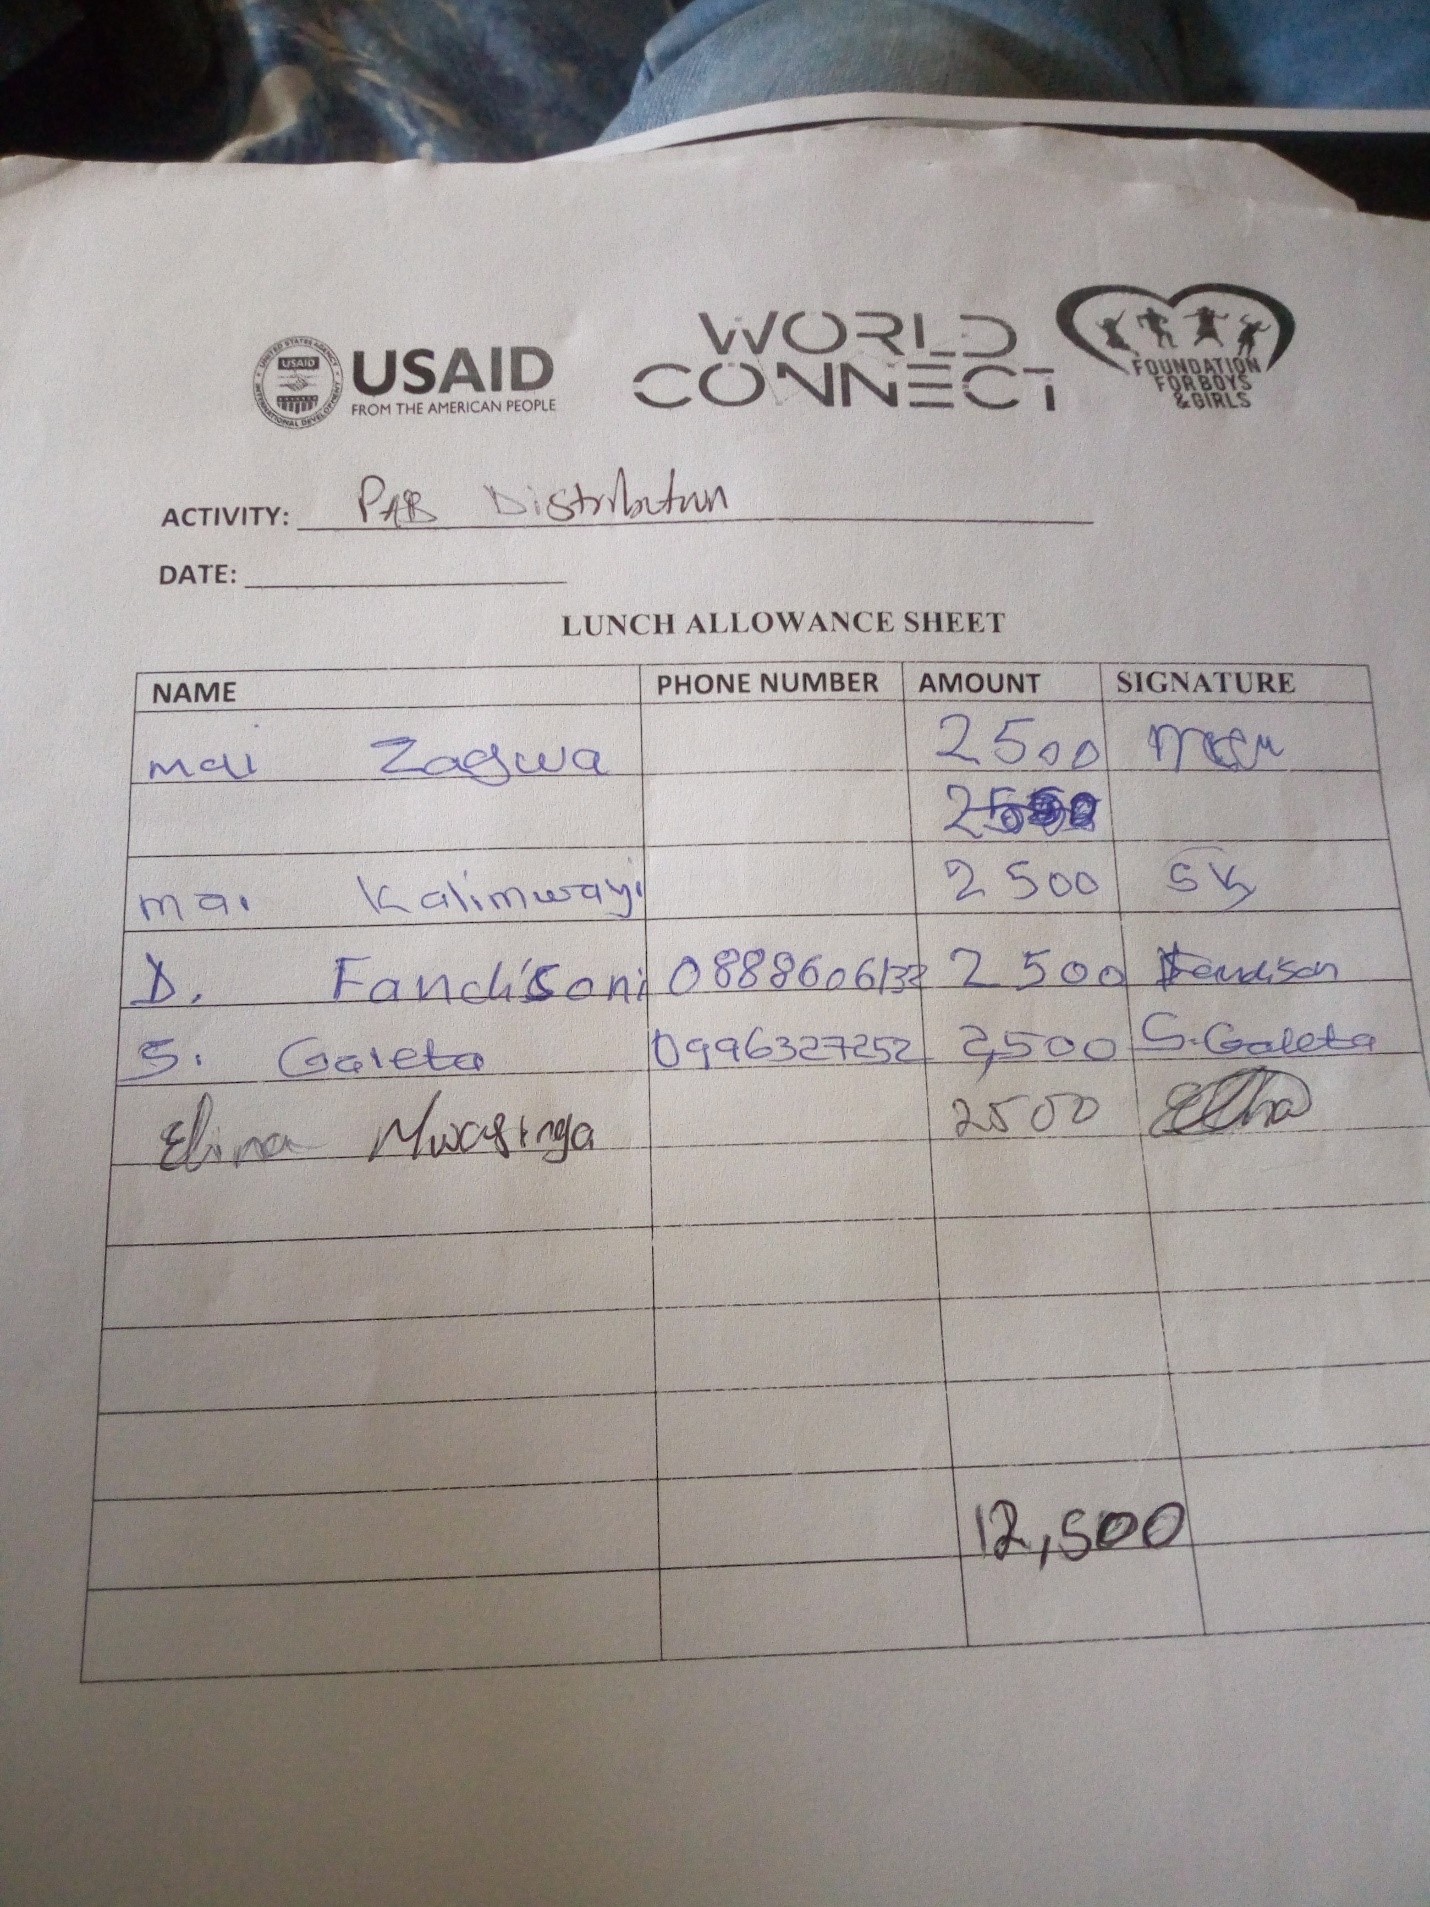 UNITED STATES AGENCY
USAID
INTERNATIONAL DEVELOPMENT
USAID
FROM THE AMERICAN PEOPLE
WORLD
CONNECT
FOUNDATION
FOR BOYS
& GIRLS
ACTIVITY: PAB Distribution
DATE:
LUNCH ALLOWANCE SHEET
NAME PHONE NUMBER AMOUNT SIGNATURE
mai Zagwa 2500
mai Kalimwayi 2500 SK
D. Fandisoni 0888606132 2500 Fandison
S. Galeta 0996327252 2,500 S. Galeta
Elina Mwasinga 2500
12,500